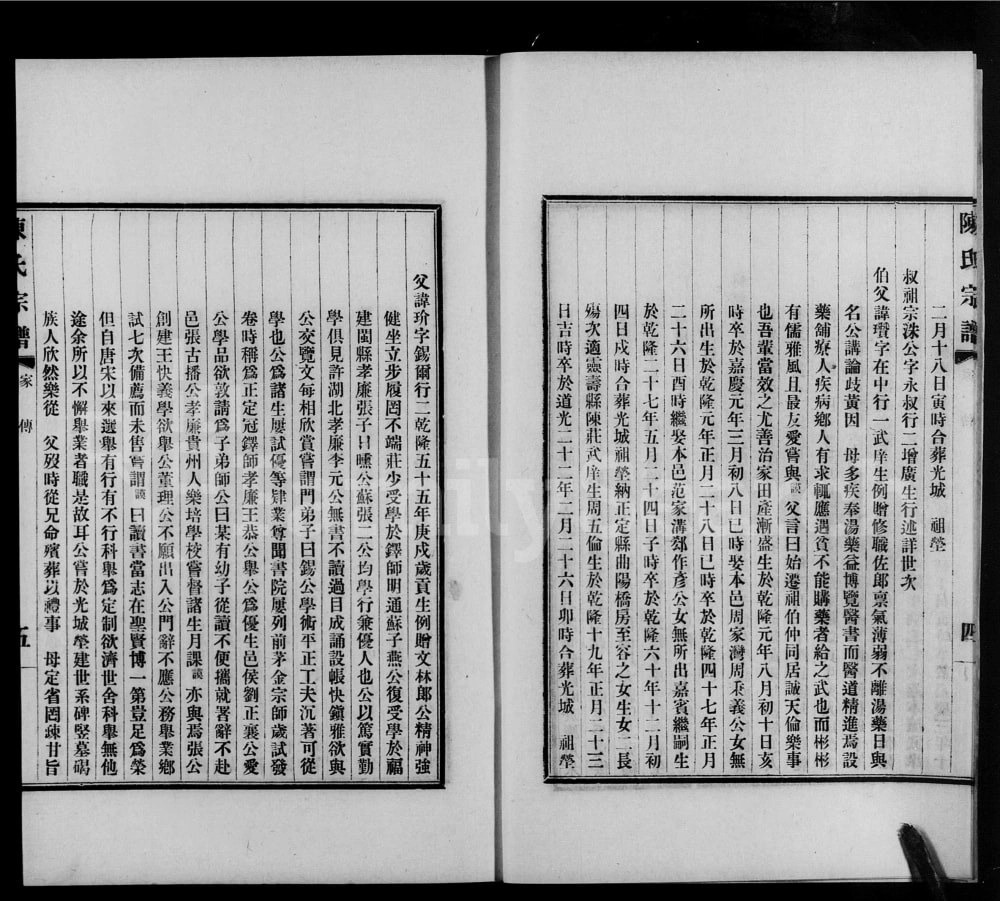 陳氏宗譜
四
二月十八日寅時合葬光城　祖塋
叔祖宗洙公字永叔行二增廣生行述詳世次
伯父諱瓚字在中行一武庠生例贈修職佐郎稟氣薄弱不離湯藥日與
名公講論歧黃因　母多疾奉湯藥益博覽醫書而醫道精進焉設
藥舖療人疾病鄉人有求輒應遇貧不能購藥者給之武也而彬彬
有儒雅風且最友愛嘗與談父言曰始遷祖伯仲同居誠天倫樂事
也吾輩當效之尤善治家田產漸盛生於乾隆元年八月初十日亥
時卒於嘉慶元年三月初八日巳時娶本邑周家灣周秉義公女無
所出生於乾隆元年正月二十八日巳時卒於乾隆四十七年正月
二十六日酉時繼娶本邑范家溝郊作彥公女無所出嘉賓繼嗣生
於乾隆二十七年五月二十四日子時卒於乾隆六十年十二月初
四日戌時合葬光城祖塋納正定縣曲陽橋房至容之女生女二長
殤次適靈壽縣陳莊武庠生周五倫生於乾隆十九年正月二十三
日吉時卒於道光二十二年二月二十六日卯時合葬光城　祖塋
父諱玠字錫爾行二乾隆五十五年庚戌歲貢生例贈文林郎公精神強
健坐立步履罔不端莊少受學於鐸師明通蘇子燕公復受學於福
建閩縣孝廉張子日曛公蘇張二公均學行兼優人也公以篤實勤
學俱見許湖北孝廉李元公無書不讀過目成誦設帳快鎭雅欲與
公交覽文每相欣賞嘗謂門弟子曰錫公學術平正工夫沉著可從
學也公為諸生屢試優等肄業尊聞書院屢列前茅金宗師歲試發
卷時稱為正定冠鐸師孝廉王恭公舉公為優生邑侯劉正襄公愛
公學品欲敦請為子弟師公曰某有幼子從讀不便攜就署辭不赴
邑張古播公孝廉貴州人樂培學校嘗督諸生月課談亦與焉張公
創建王快義學欲舉公董理公不願出入公門辭不應公務舉業鄉
試七次備薦而未售嘗謂談曰讀書當志在聖賢博一第豈足為榮
但自唐宋以來選舉有行有不行科舉為定制欲濟世舍科舉無他
途余所以不懈舉業者職是故耳公嘗於光城塋建世系碑豎墓碣
族人欣然樂從　父歿時從兄命殯葬以禮事　母定省罔疎甘旨
陳氏宗譜
家傳
五